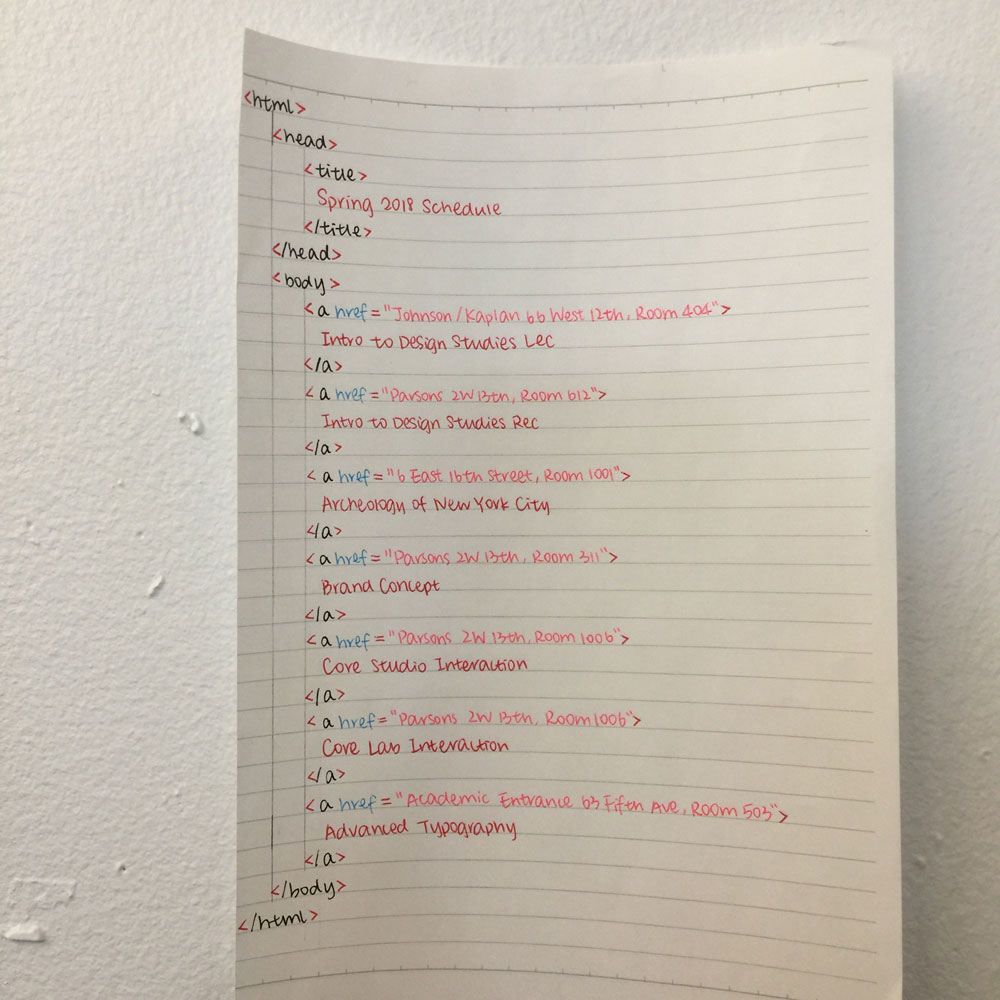 <html>
<head>
<title>
Spring 2018 Schedule
</title>
</head>
<body>
<a href="Johnson/Kaplan 66 West 12th, Room 404">
Intro to Design Studies Lec
</a>
<a href="Parsons 2W 13th, Room 612">
Intro to Design Studies Rec
</a>
<a href="6 East 16th Street, Room 1001">
Archeology of New York City
</a>
<a href="Parsons 2W 13th, Room 311">
Brand Concept
</a>
<a href="Parsons 2W 13th, Room 1006">
Core Studio Interaction
</a>
<a href="Parsons 2W 13th, Room 1006">
Core Lab Interaction
</a>
<a href="Academic Entrance 63 Fifth Ave, Room 503">
Advanced Typography
</a>
</body>
</html>